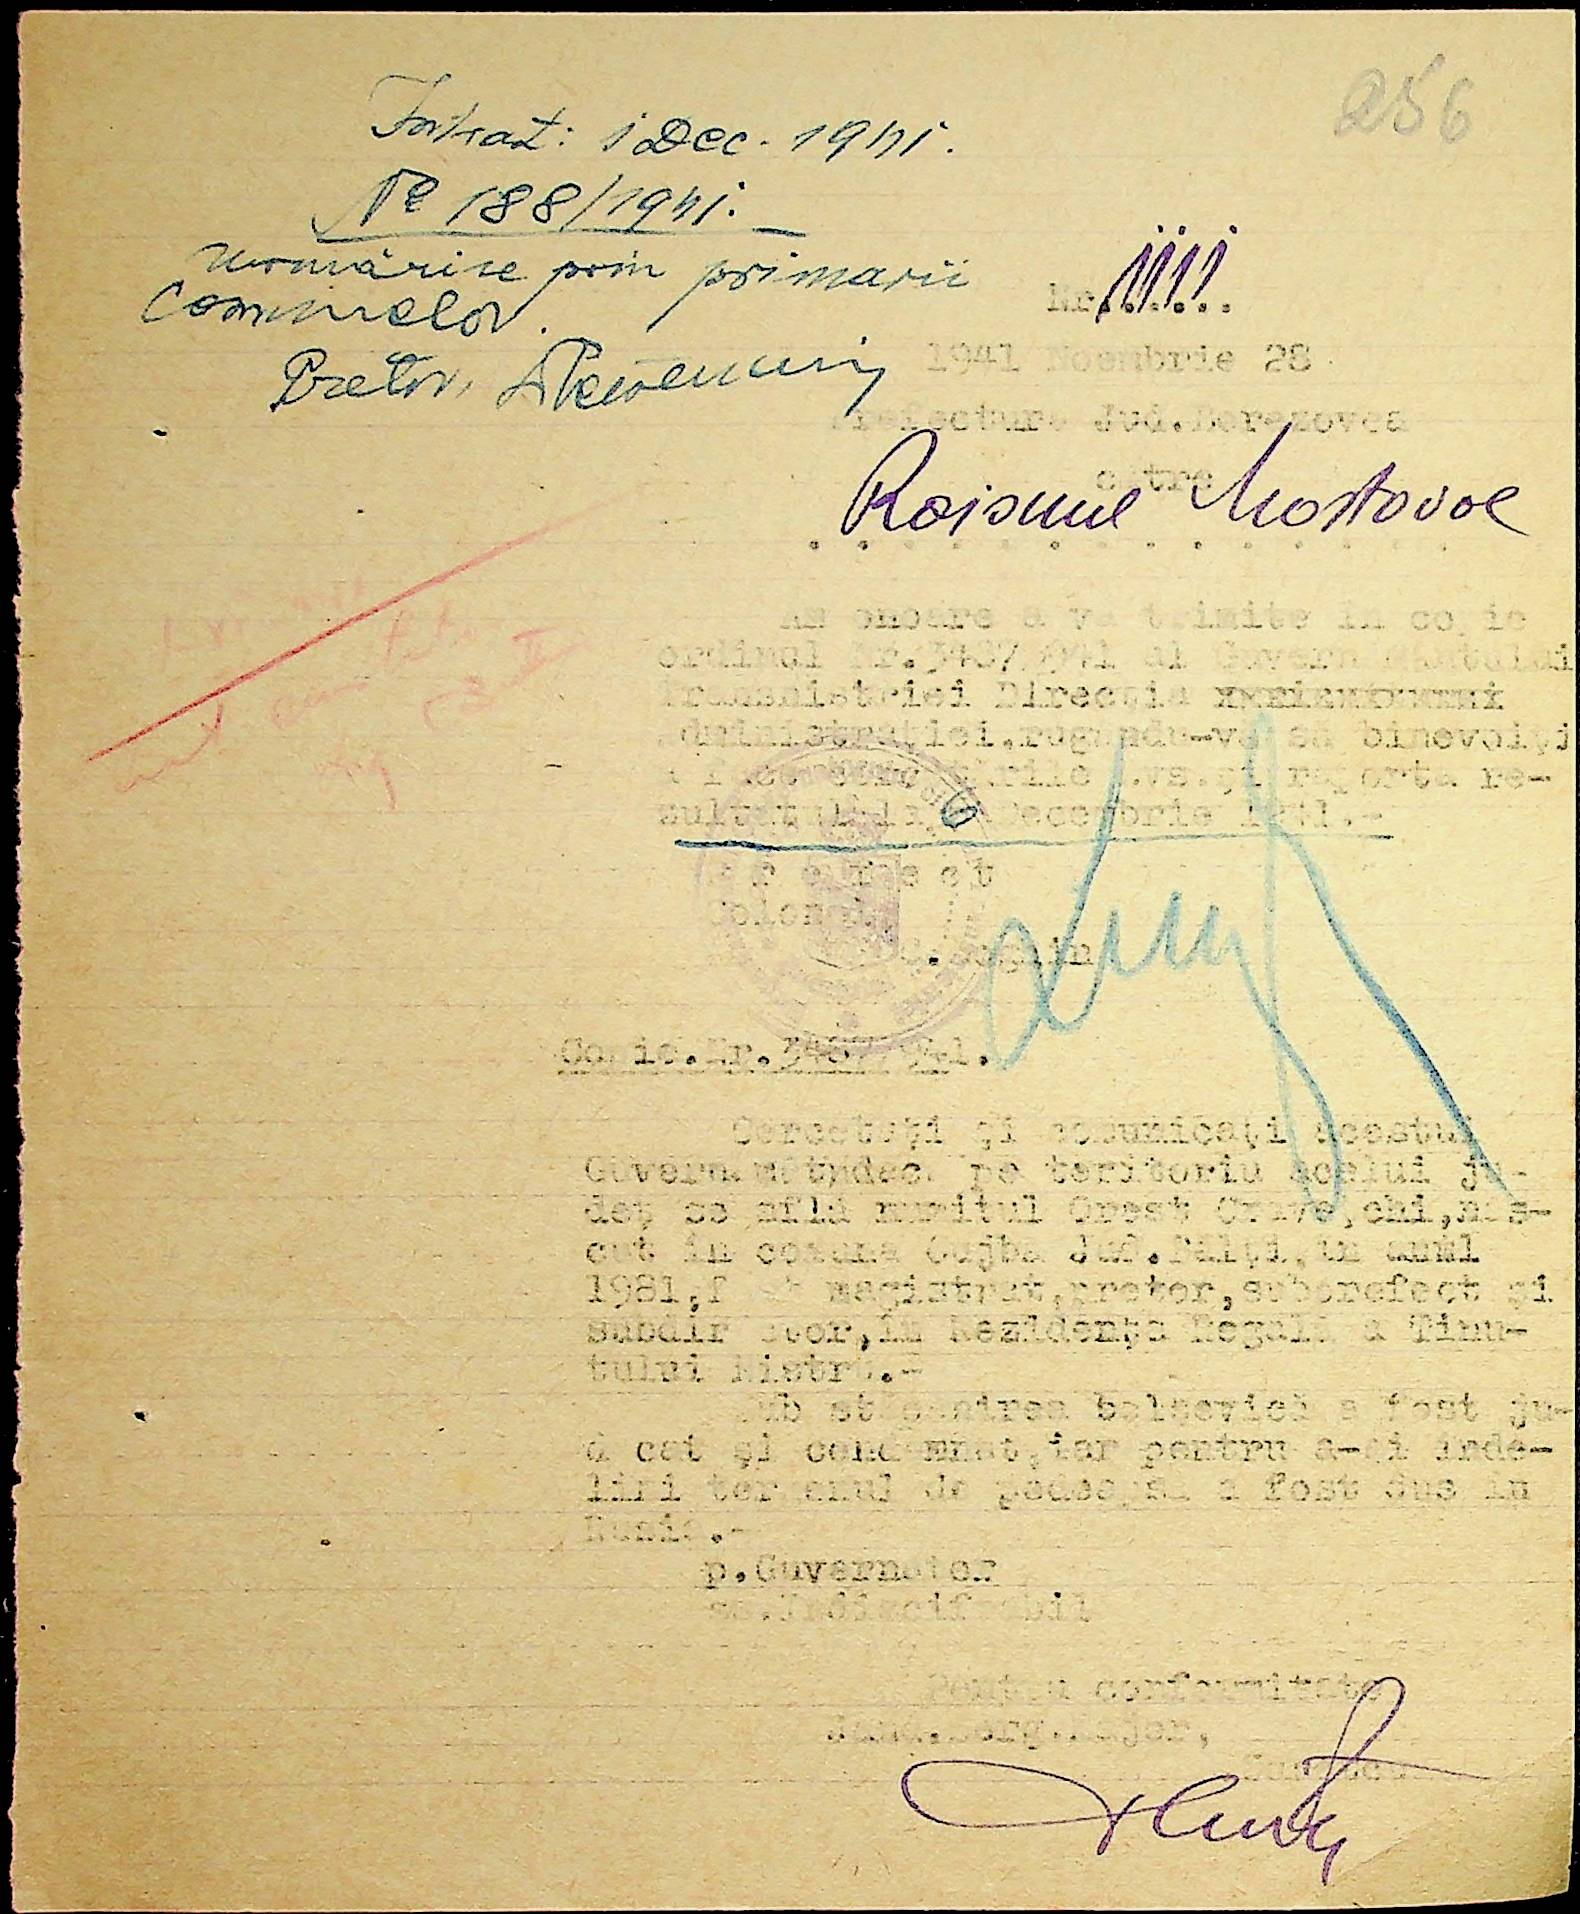 256
Intrat: 1 Dec. 1941.
No 188/1941.
Urmărire prin primarii
Comunelor.
Pretor,
Nr. 1111
1941 Noembrie 28
Prefectura Jud. Berezovca
către
Raionul Mostovoe
Am onoare a vă trimite în copie
ordinul Nr. 3487/941 al Guvernământului
Transnistriei Direcția
Administrației, rugându-vă să binevoiți
a face cercetările dvs. și raporta re-
zultatul la 6 Decembrie 1941.-
Prefect
Colonel
Copie. Nr. 3487/941.
Cercetați și comunicați acestui
Guvernământ dacă pe teritoriu acelui ju-
deț se află numitul Orest
cut în comuna Cujba Jud. Bălți, în anul
1981, f st magistrat, pretor, subprefect și
subdirector, în Rezidența Regală a Tinu-
tului Nistru.-
Sub stăpânirea bolșevică a fost ju-
decat și condamnat, iar pentru a-și înde-
lini termenul de pedeapsă a fost dus în
Rusia.-
p. Guvernator
ss. Indescifrabil
Pentru conformitate